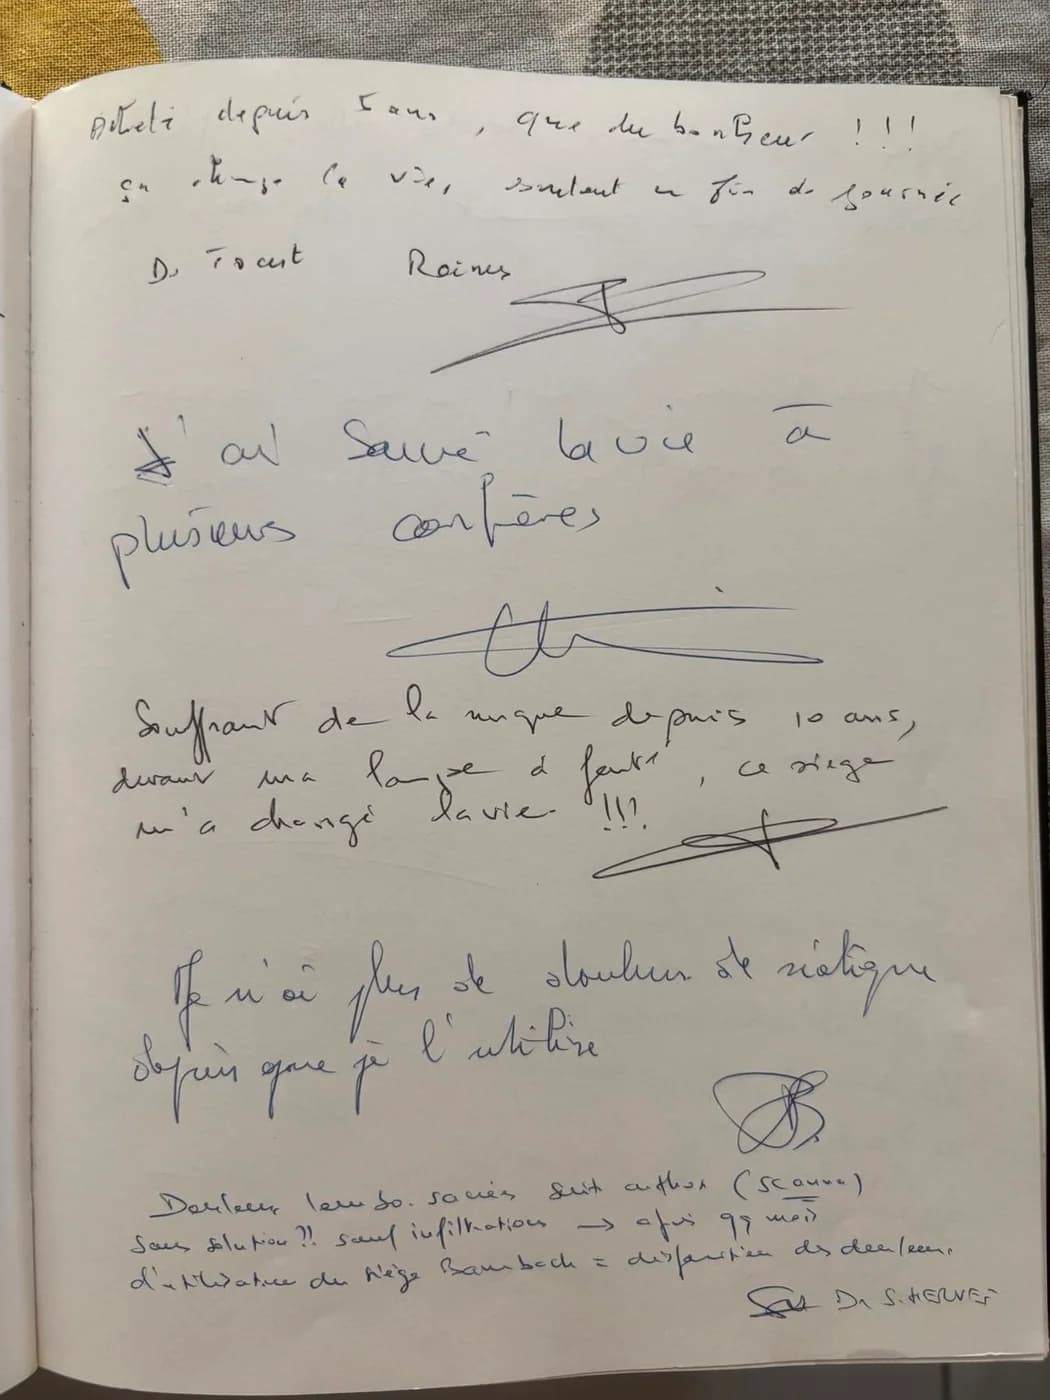 Acheté depuis 5 ans, que du bonheur !!!
ça change la vie, surtout en fin de journée
Dr
J'ai sauvé la vie à
plusieurs confrères
Souffrant de la nuque depuis 10 ans,
devant ma lampe à fente, ce siège
m'a changé la vie !!!
Je n'ai plus de douleur de siatique
depuis que je l'utilise
Douleurs lombo. sacrées (scanner)
sans solution?! sauf infiltrations → après qq mois
d'utilisation du siège Bambach = disparition des douleurs.
Dr S. HERVET